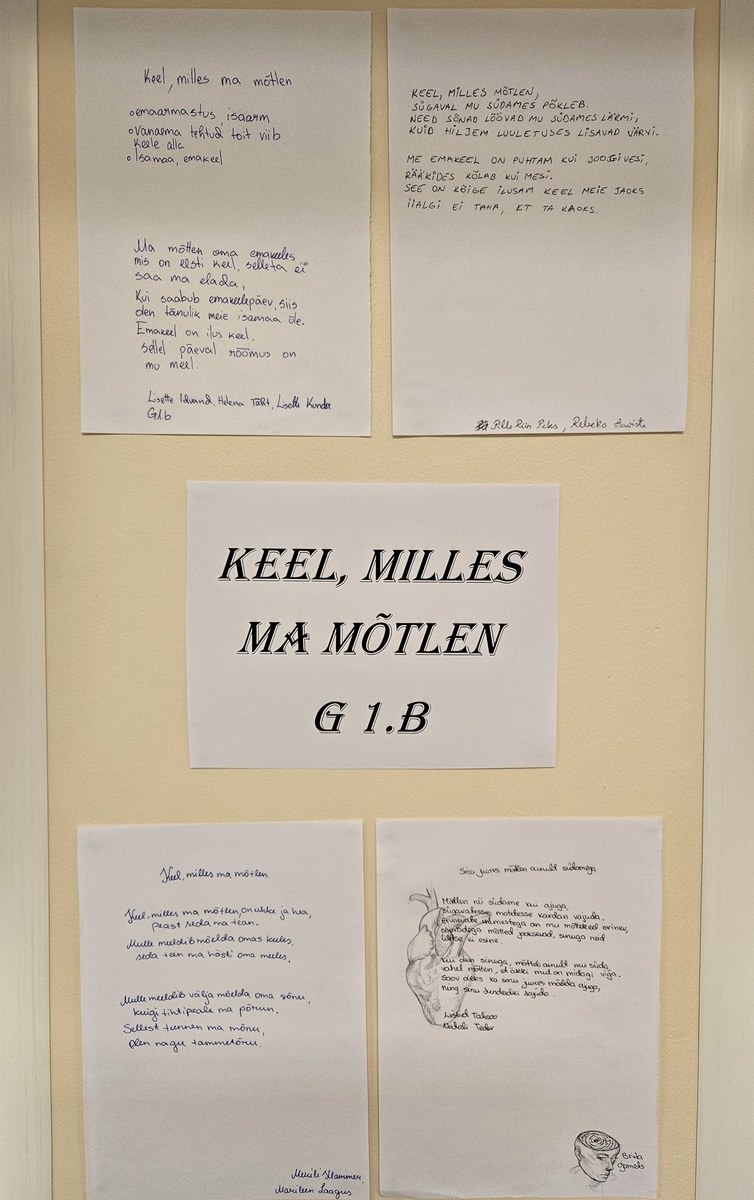 Keel, milles ma mõtlen
emaarmastus, isaarm
Vanaema tehtud toit viib
keele alla
Isamaa, emakeel
Ma mõtlen oma emakeeles
mis on eesti keel, selleta ei
saa ma elada,
Kui saabub emakeelepäev, siis
olen tänulik meie isamaa üle.
Emakeel on ilus keel,
sellel päeval rõõmus on
mu meel.
Lisette Helena Täht, Lisette Kunder
G1.b
KEEL, MILLES MÕTLEN,
SÜGAVAL MU SÜDAMES PÕKLEB.
NEED SÕNAD LÖÖVAD MU SÜDAMES LÄRMI,
KUID HILJEM LUULETUSES LISAVAD VÄRVI.
ME EMAKEEL ON PUHTAM KUI JOOGIVESI,
RÄÄKIDES KÕLAB KUI MESI.
SEE ON KÕIGE ILUSAM KEEL MEIE JAOKS
IIALGI EI TAHA, ET TA KAOKS.
Pille Riin Peks, Rebeka
KEEL, MILLES
MA MÕTLEN
G 1.B
Keel, milles ma mõtlen
Keel, milles ma mõtlen, on uhke ja hea,
peast seda ma tean.
Mulle meeldib mõelda omas keeles,
seda tean ma hästi oma meeles.
Mulle meeldib välja mõelda oma sõnu,
kuigi tihtipeale ma põrun.
Sellest tunnen ma mõnu,
olen nagu tammetõru.
Klammer,
Marileen Laagus
Sinu juures mõtlen ainult südamega
Mõtlen nii südame kui ajuga,
sügavatesse mõtetesse kardan vajuda.
erinevate inimestega on mu mõtekeel erinev,
sõpradega mõtted jooksevad, sinuga neid
üldse ei esine.
Kui olen sinuga, mõtleb ainult mu süda
vahel mõtlen, et äkki mul on midagi viga.
Soov oleks ka sinu juures mõelda ajuga,
ning sinu tundeidki tajuda.
Natali Teder